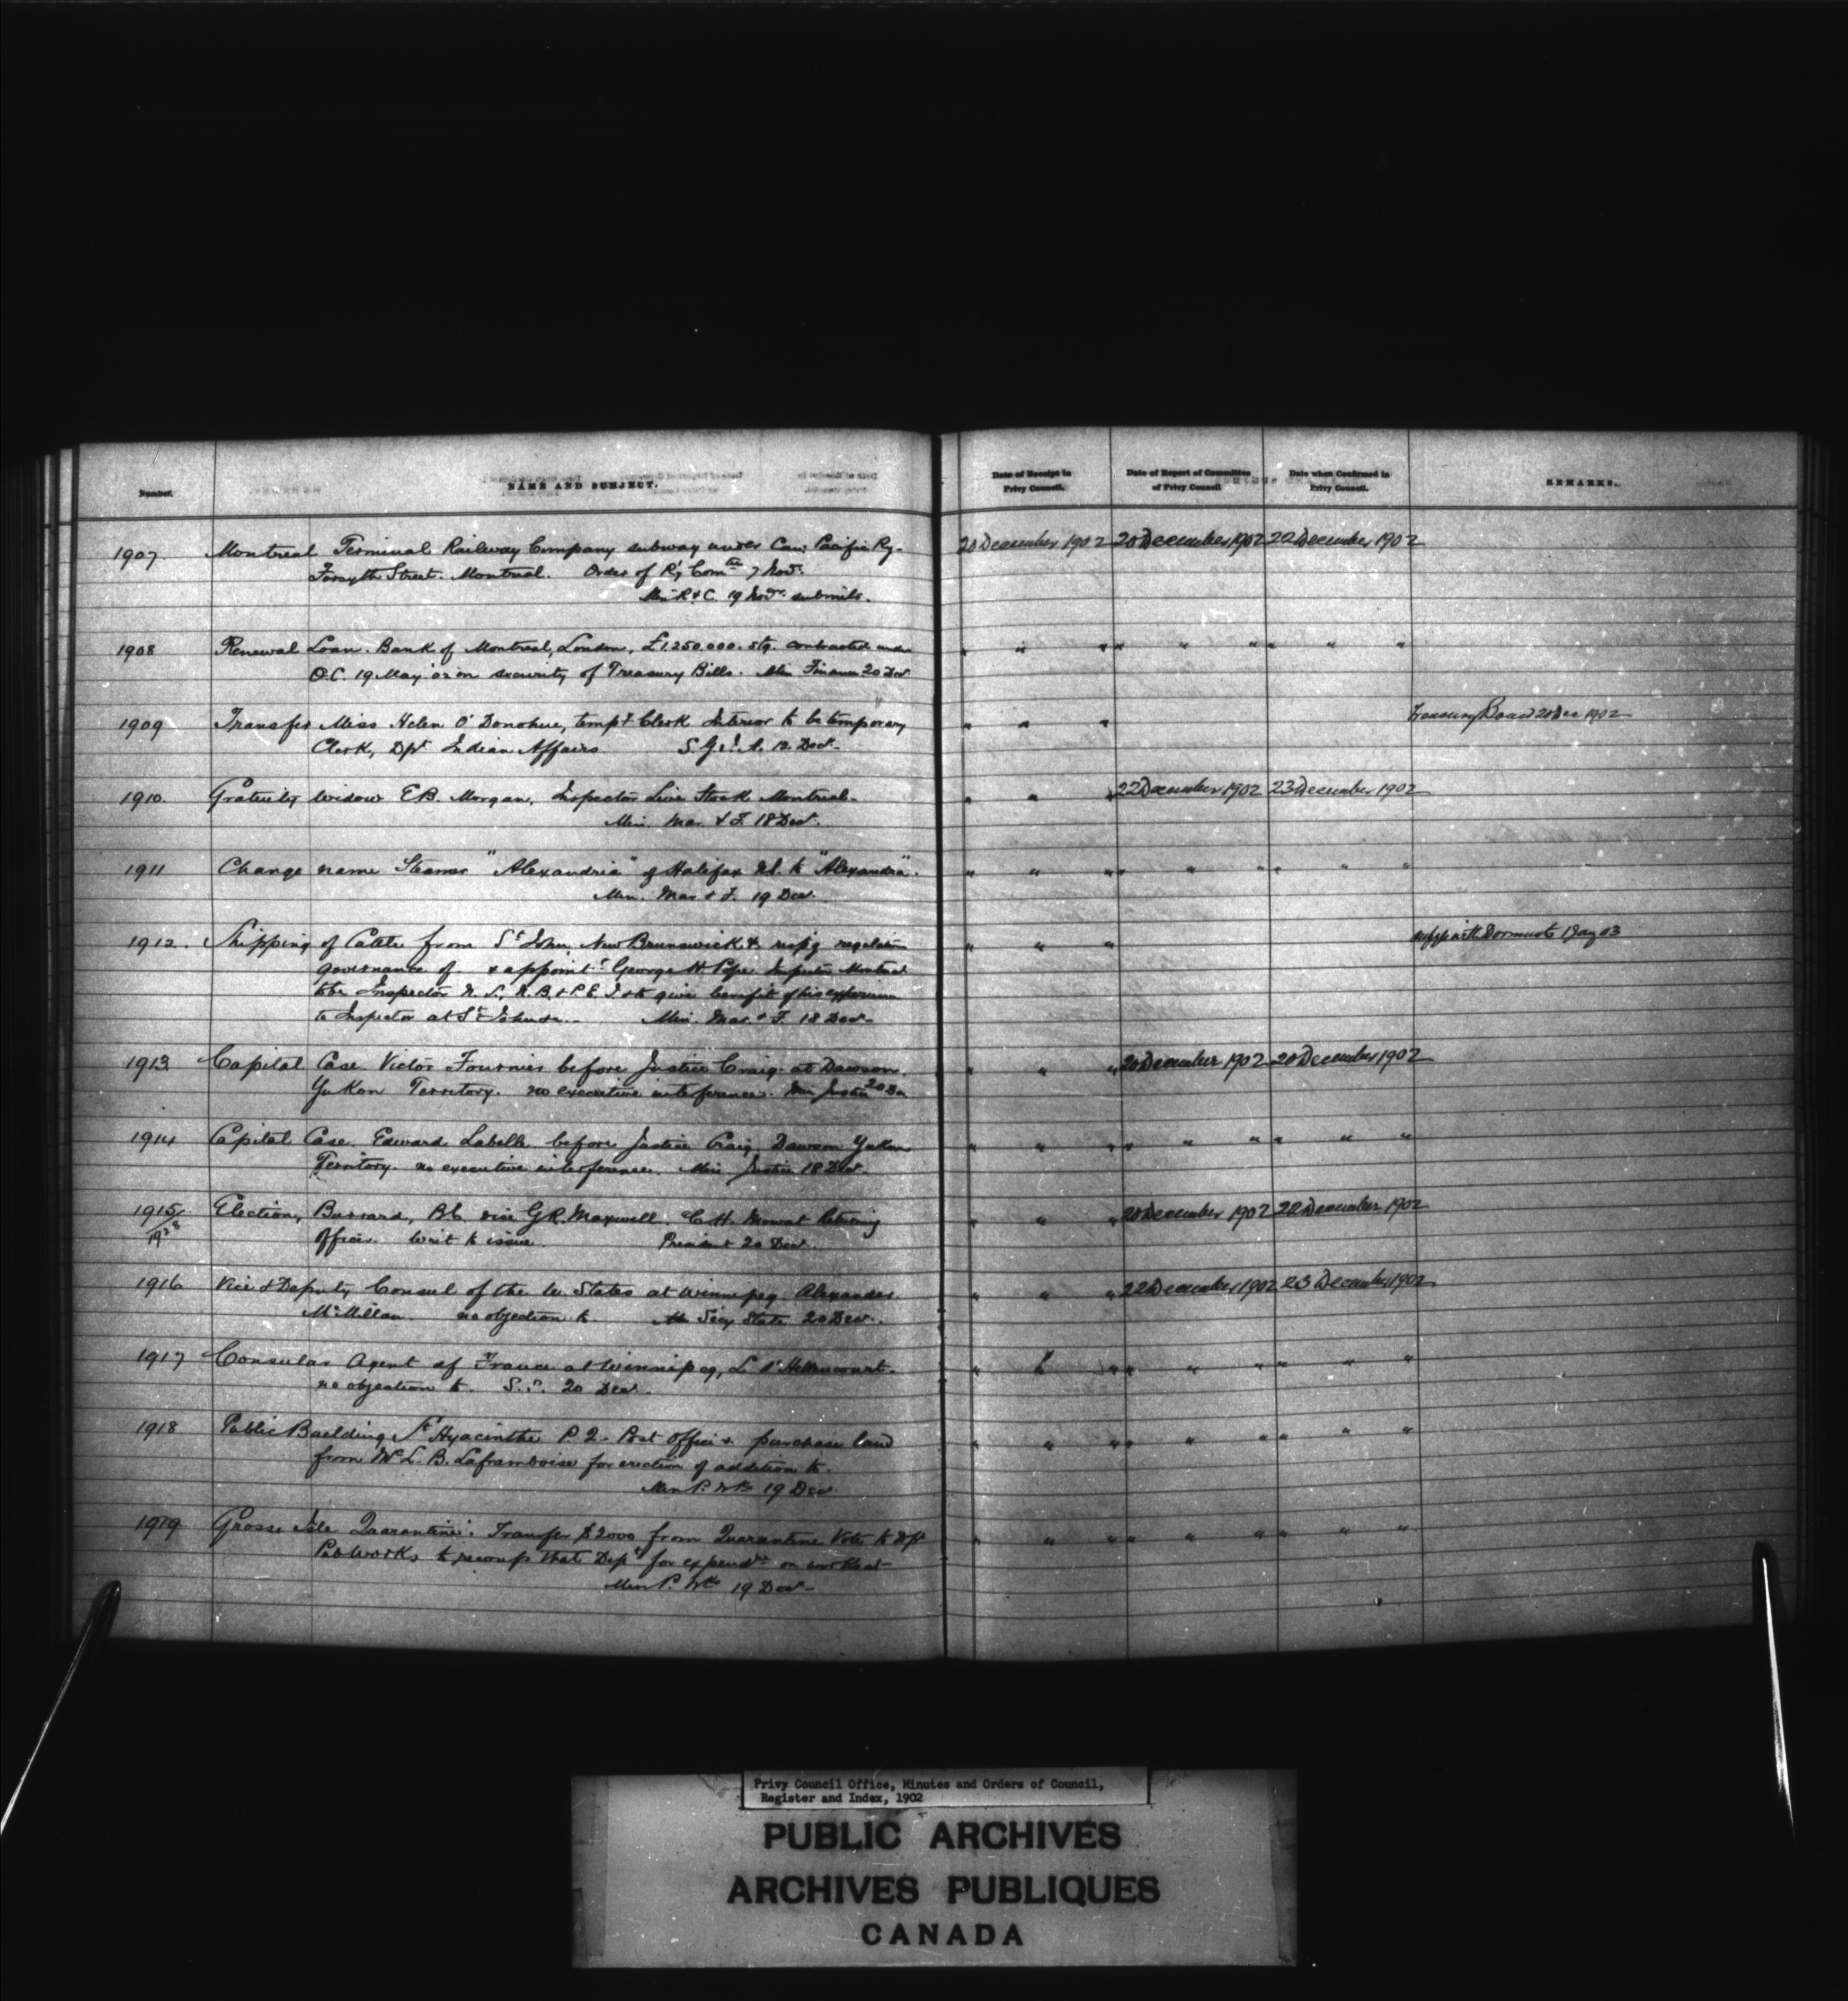 Number.
NAME AND SUBJECT.
Date of Receipt in Privy Council.
Date of Report of Committee of Privy Council
Date when Confirmed in Privy Council.
REMARKS.
1907 Montreal Terminal Railway Company subway under Can: Pacific Ry. 20 December 1902 20 December 1902 22 December 1902
Forsyth Street. Montreal. Order of Ry Comtee 7 Novr.
Min R & C. 19 Novr. submits.
1908 Renewal Loan. Bank of Montreal, London, £1.250.000. stg. contracted under " " " " " " " " "
O.C. 19 May '02 on security of Treasury Bills. Min Finance 20 Decr
1909 Transfer Miss Helen O'Donohue, tempy Clerk Interior to be temporary " " " Treasury Board 20 Dec 1902
Clerk, Dpt Indian Affairs S.G.I.A. 12 Decr.
1910. Gratuity widow E.B. Morgan, Inspector Live Stock Montreal. " " " 22 December 1902 23 December 1902
Min. Mar. & F. 18 Decr.
1911 Change name Steamer "Alexandria" of Halifax N.S. to "Alexandra". " " " " " " " " "
Min. Mar & F. 19 Decr.
1912. Shipping of Cattle from St John New Brunswick & resp'g regulation " " " Dormants 1 Jany 03
governance of & appointt George H. Pope Inspector Montreal
to be Inspector N.S., N.B. & P.E.I. & to give benefit of his experience
to Inspector at St John &c. Min. Mar. & F. 18 Decr.
1913 Capital Case Victor Fournier before Justice Craig at Dawson. " " " 20 December 1902 20 December 1902
Yukon Territory. no executive interference. Min Justice 20 Dec
1914 Capital Case. Edward Labelle before Justice Craig Dawson Yukon " " " " " " " " "
Territory. no executive interference. Min Justice 18 Decr.
1915/1928 Election, Burrard, B.C. vice G.R. Maxwell. C.H. Mowat Returning " " " 20 December 1902 22 December 1902
Officer. writ to issue. President 20 Decr.
1916 Vice & Deputy Consul of the U. States at Winnipeg Alexander " " " 22 December 1902 23 December 1902
McMillan no objection to. Secy State 20 Decr.
1917 Consular Agent of France at Winnipeg, L. d'Hellencourt. " " " " " " " "
no objection to. S.S. 20 Decr.
1918 Public Building St Hyacinthe P.Q. Post Office & purchase land " " " " " " " " "
from L.B. Laframboise for erection of addition to.
Min P. Wks 19 Decr
1919 Grosse Isle Quarantine: Transfer $2000 from Quarantine Vote to Dpt " " " " " " " " "
Pub Works to recoup that Dept for expendre on works at
Min P. Wks 19 Decr
Privy Council Office, Minutes and Orders of Council,
Register and Index, 1902
PUBLIC ARCHIVES
ARCHIVES PUBLIQUES
CANADA